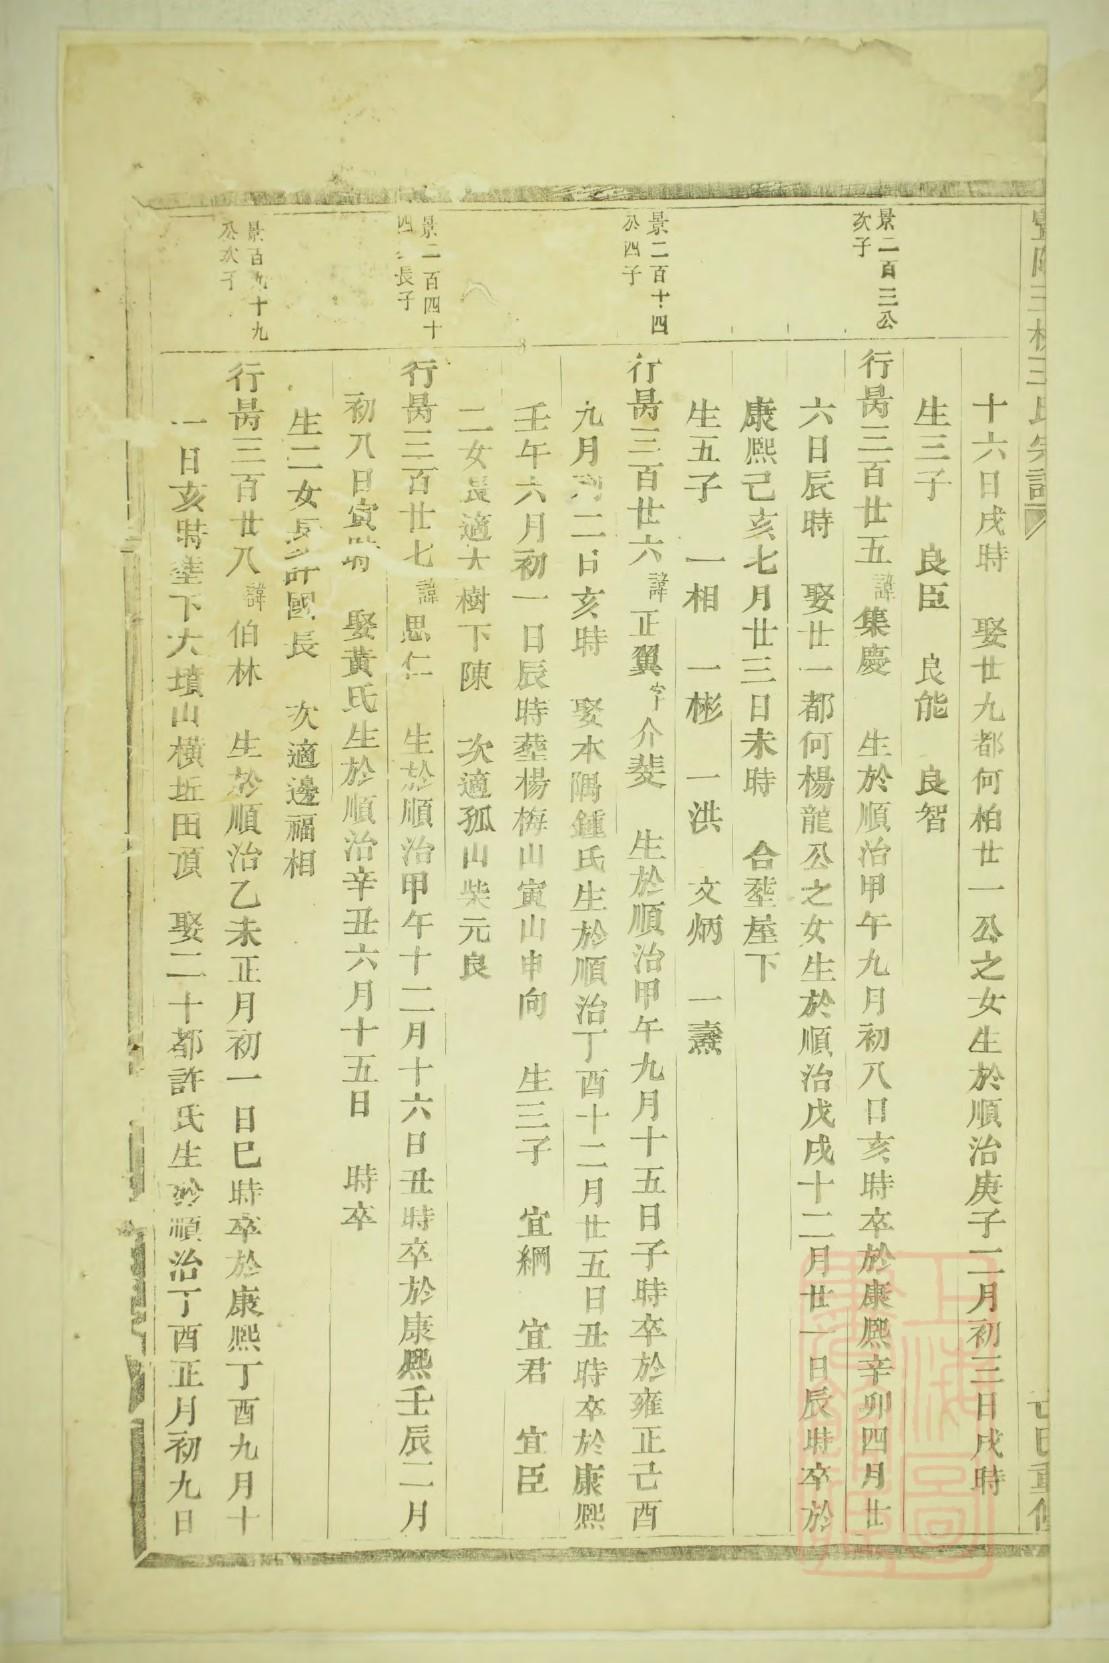 十六日戌時 娶廿九都何柏廿一公之女生於順治庚子二月初三日戌時
生三子 良臣 良能 良智
景二百三公
次子
行昺三百廿五諱集慶 生於順治甲午九月初八日亥時卒於康熙辛卯四月廿
六日辰時 娶廿一都何楊龍公之女生於順治戊戌十二月廿一日辰時卒於
康熙己亥七月廿三日未時 合塟屋下
生五子 一相 一彬 一洪 文炳 一燾
景二百十四
公四子
行昺三百廿六諱正翼字介斐 生於順治甲午九月十五日子時卒於雍正己酉
九月 二日亥時 娶本隅鍾氏生於順治丁酉十二月廿五日丑時卒於康熙
壬午六月初一日辰時塟楊梅山寅山申向 生三子 宜綱 宜君 宜臣
二女長適大樹下陳 次適孤山柴元良
景二百四十
四 長子
行昺三百廿七諱思仁 生於順治甲午十二月十六日丑時卒於康熙壬辰二月
初八日寅時 娶黃氏生於順治辛丑六月十五日 時卒
生二女長許國長 次適邊福相
景百九十九
公次子
行昺三百廿八諱伯林 生於順治乙未正月初一日巳時卒於康熙丁酉九月十
一日亥時塟下大墳山橫坵田頂 娶二十都許氏生於順治丁酉正月初九日